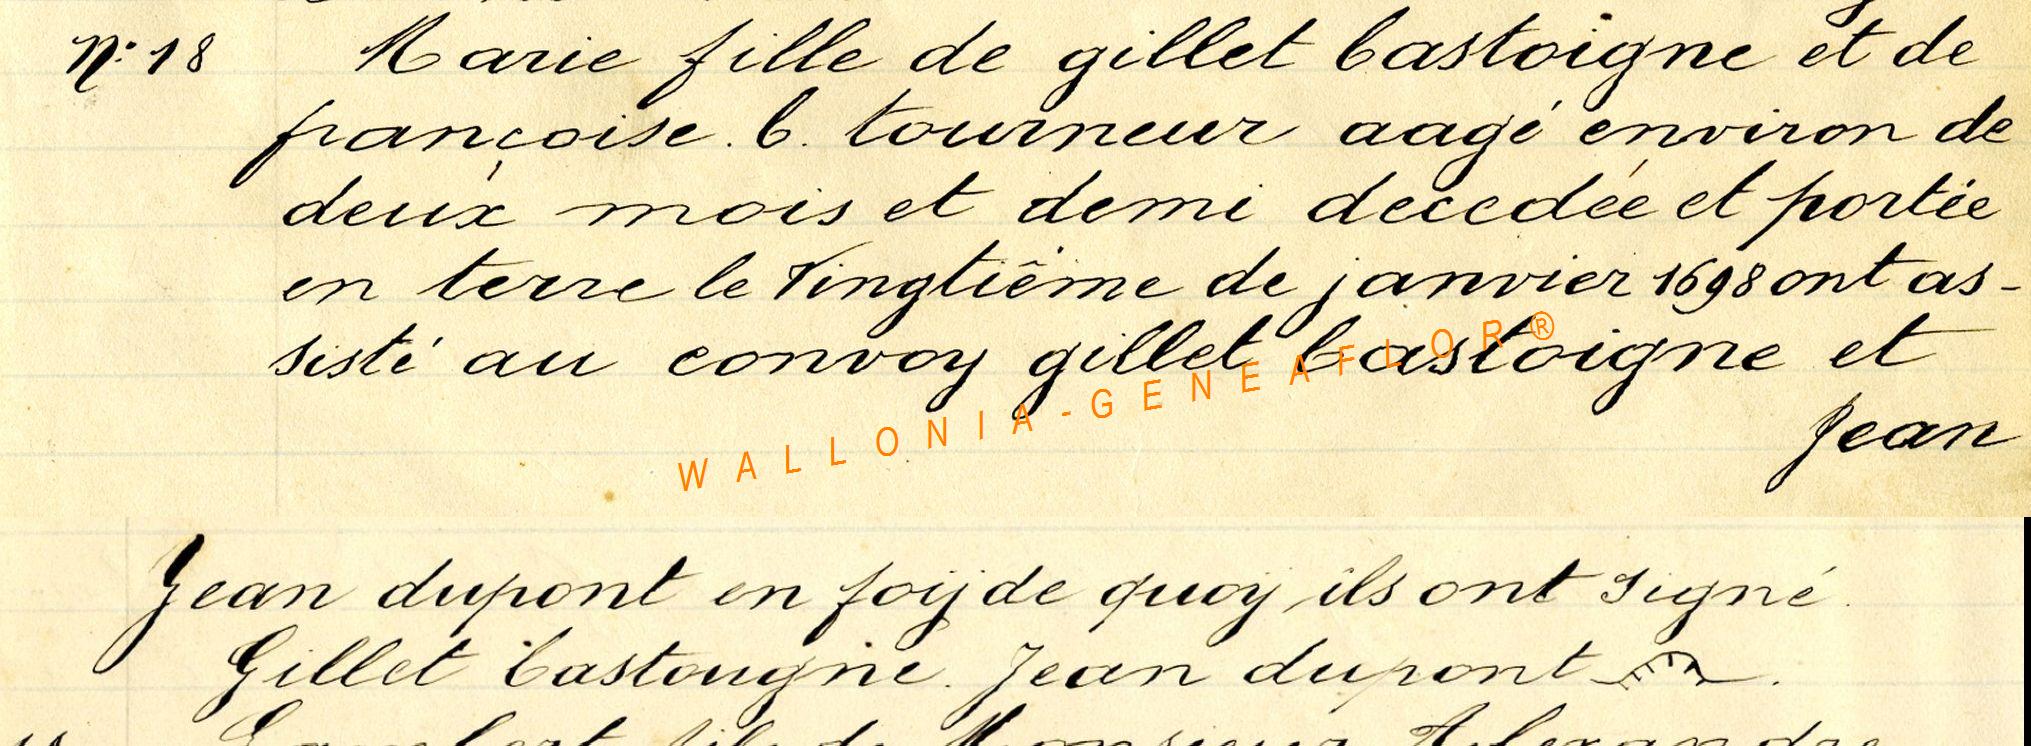 N: 18 Marie fille de gillet bastoigne et de
françoise. b. tourneur aagé environ de
deux mois et demi decedée et portée
en terre le Vingtiême de janvier 1698 ont as-
sisté au convoy gillet bastoigne et
Jean
WALLONIA-GENEAFLOR®
Jean dupont en foy de quoy ils ont signé.
Gillet bastougne. Jean dupont.
Lambert fils de Monsieur Alexandre